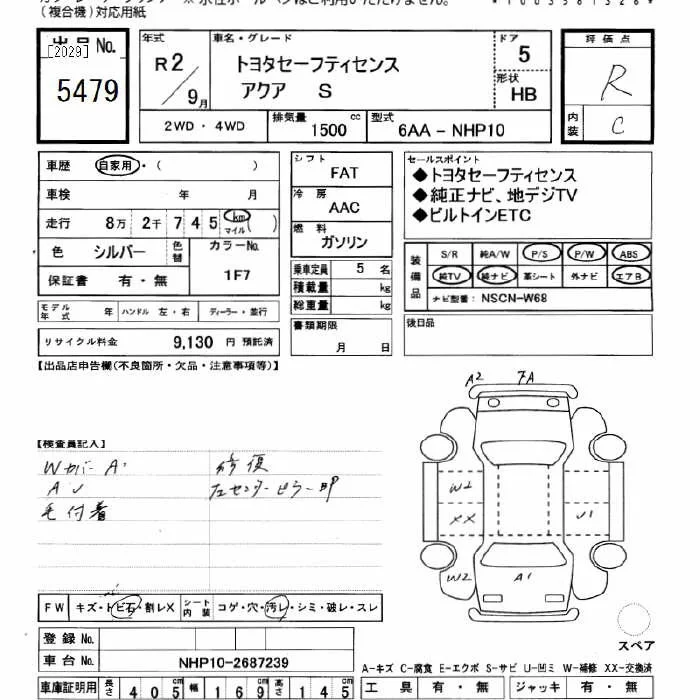 (複合機)対応用紙
出品No.
[2029]
5479
年式
R2/9月
車名・グレード
トヨタセーフティセンス
アクア S
ドア
5
形状
HB
評価点
R
内装
C
2WD・4WD
排気量 1500 cc
型式 6AA-NHP10
車歴 自家用・( )
車検 年 月
走行 8万 2千 7 4 5 km マイル( )
色 シルバー 色替
カラーNo.
1F7
保証書 有・無
モデル年式 年 ハンドル 左・右 ディーラー・並行
リサイクル料金 9,130 円 預託済
シフト
FAT
冷房
AAC
燃料
ガソリン
乗車定員 5 名
積載量 kg
総重量 kg
書類期限
月 日
セールスポイント
◆トヨタセーフティセンス
◆純正ナビ、地デジTV
◆ビルトインETC
装備品
S/R 純A/W P/S P/W ABS
純TV 純ナビ 革シート 外ナビ エアB
ナビ型番: NSCN-W68
後日品
【出品店申告欄(不良箇所・欠品・注意事項等)】
A2 7A
W2
XX
U1
W2
A1
【検査員記入】
Wカバー A1
修復
左センターピラー
毛付着
FW キズ・トビ石・割レX シート内装 コゲ・穴・汚レ・シミ・破レ・スレ
登録No.
車台No. NHP10-2687239
車庫証明用 長さ 405 cm 幅 169 cm 高さ 145 cm
スペア
A-キズ C-腐食 E-エクボ S-サビ U-凹ミ W-補修 XX-交換済
工具 有・無 ジャッキ 有・無